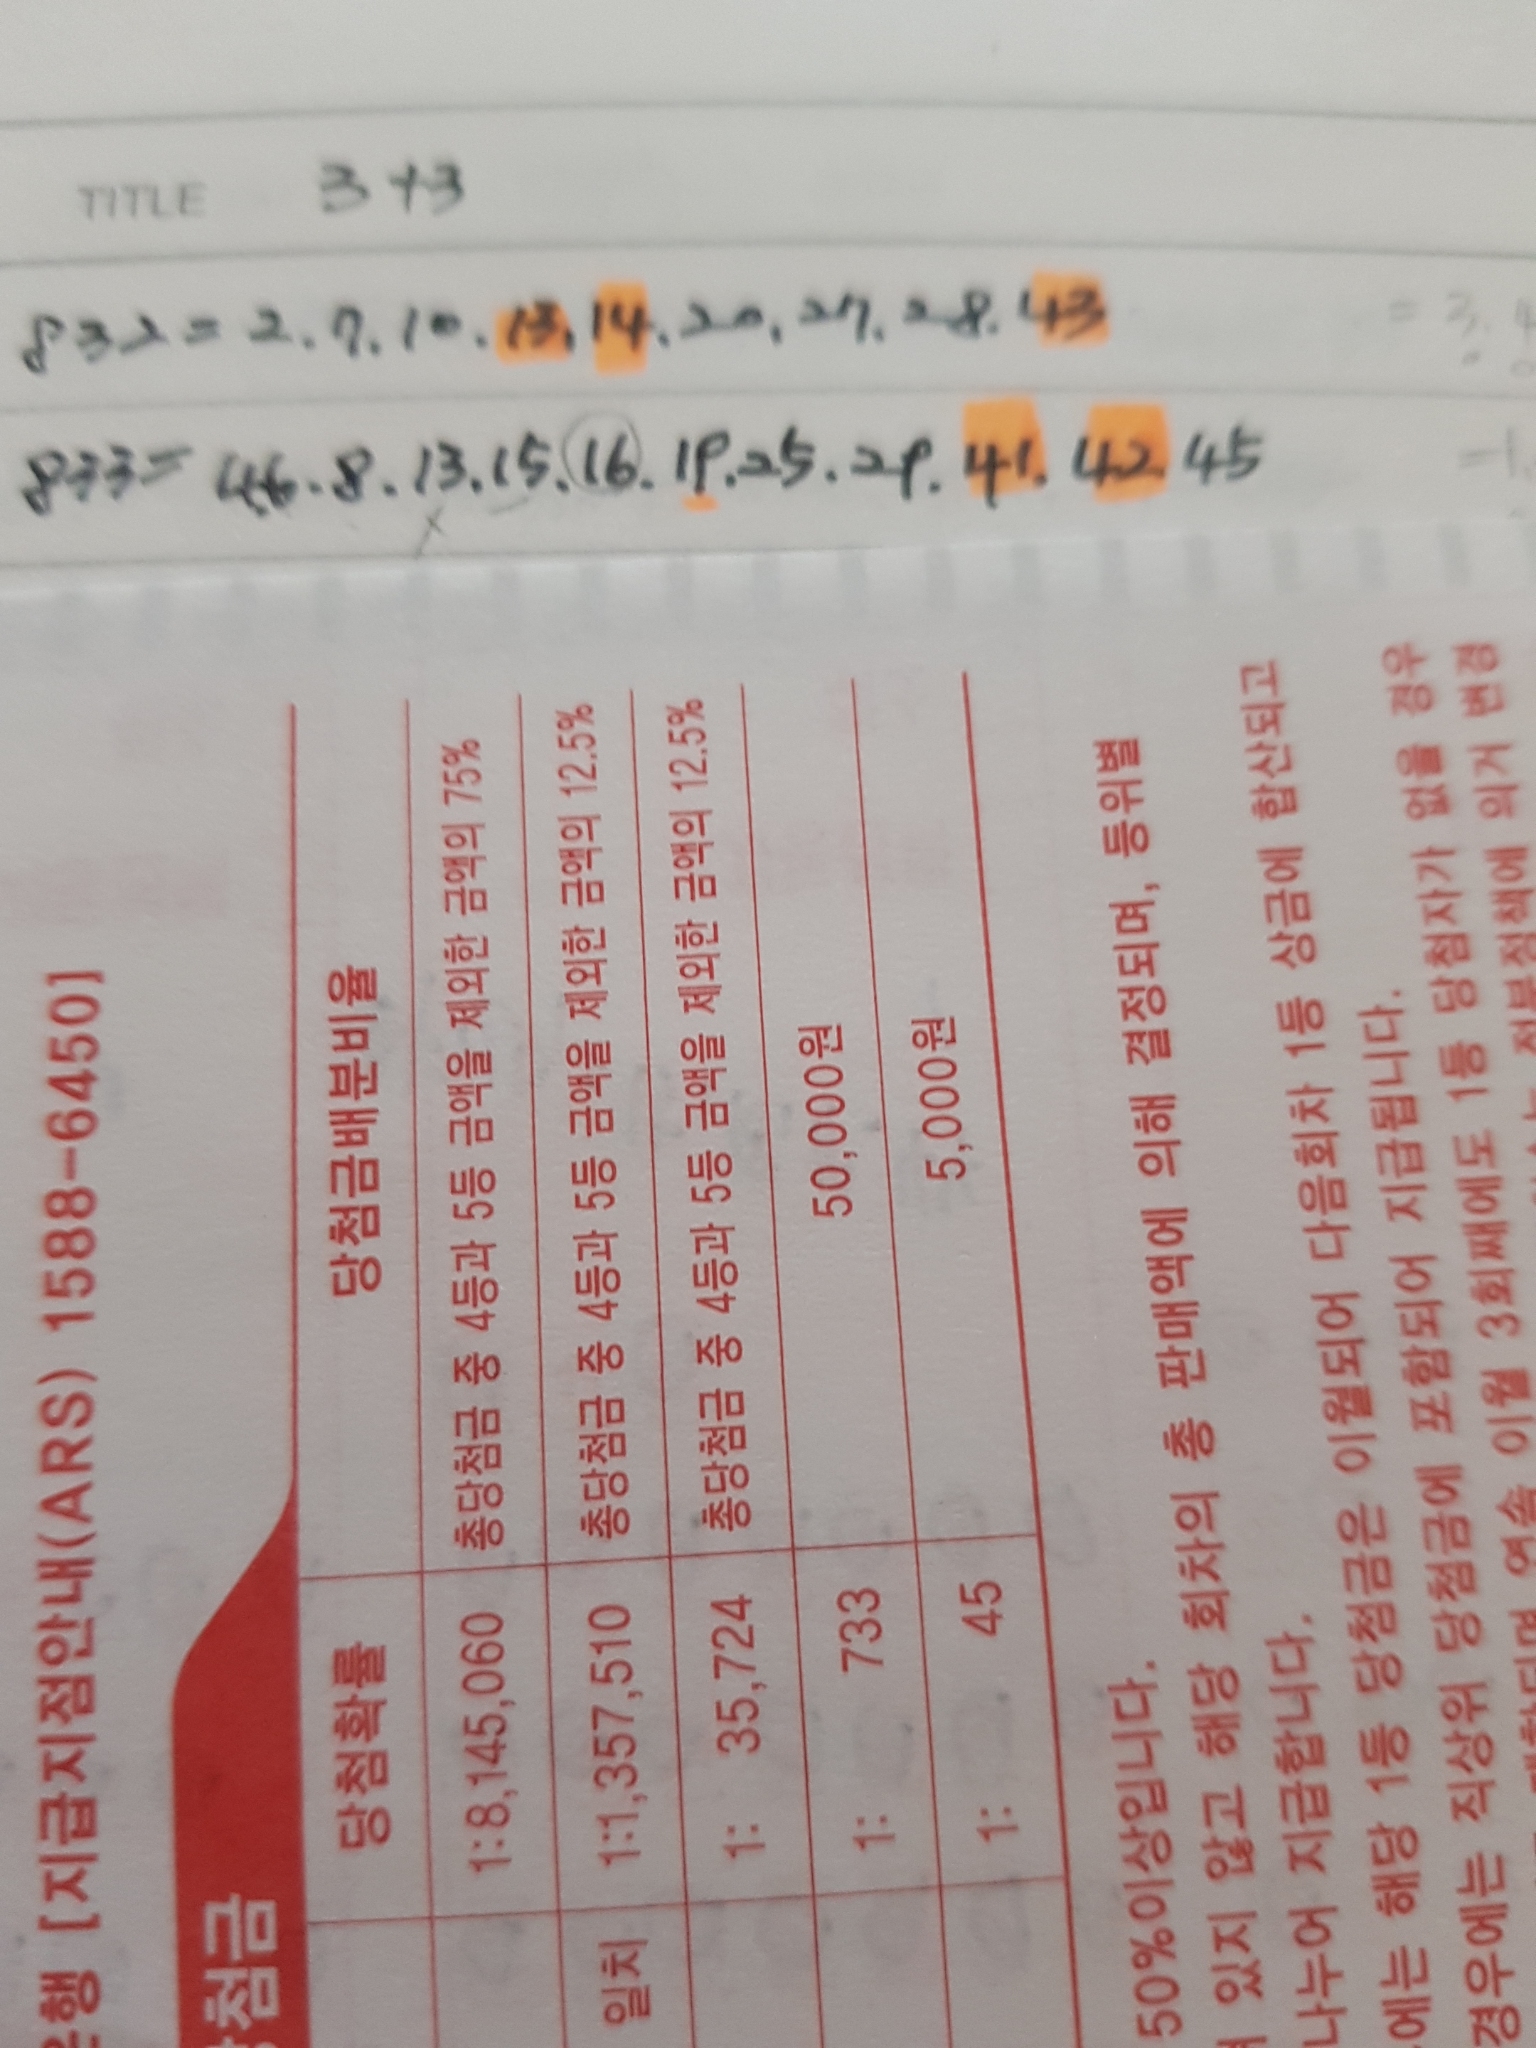 TITLE 3+3
832=2.7.10.13.14.20.27.28.43
833=4.6.8.13.15.16.19.25.29.41.42.45
[지급지점안내(ARS) 1588-6450]
당첨금
당첨확률 당첨금배분비율
1:8,145,060 총당첨금 중 4등과 5등 금액을 제외한 금액의 75%
일치 1:1,357,510 총당첨금 중 4등과 5등 금액을 제외한 금액의 12.5%
1: 35,724 총당첨금 중 4등과 5등 금액을 제외한 금액의 12.5%
1: 733 50,000원
1: 45 5,000원
50%이상입니다.
있지 않고 해당 회차의 총 판매액에 의해 결정되며, 등위별
나누어 지급합니다.
에는 해당 1등 당첨금은 이월되어 다음회차 1등 상금에 합산되고
경우에는 직상위 당첨금에 포함되어 지급됩니다.
이월 3회째에도 1등 당첨자가 없을 경우
의거 변경